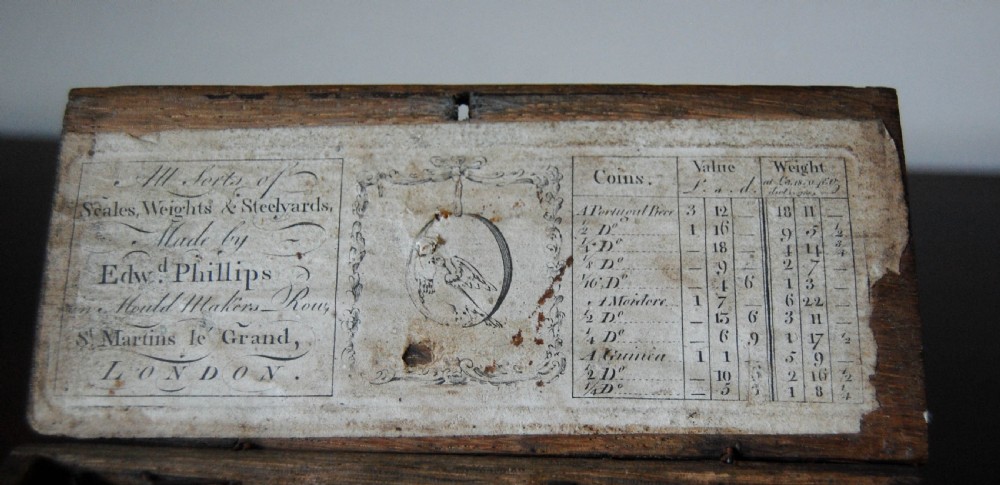 All Sorts of
Scales, Weights & Steelyards,
Made by
Edw.d Phillips
in Mould Makers Row,
St. Martins le Grand,
LONDON.
Coins. Value Weight
£. s. d.
A Portugul Piece 3 12 — 18 11 —
½ Do 1 16 — 9 5 ½
¼ Do — 18 — 4 14 ¾
⅛ Do — 9 — 2 7 —
1/16 Do — 4 6 1 3 —
A Moidore 1 7 — 6 22 —
½ Do — 13 6 3 11 —
¼ Do — 6 9 1 17 ½
A Guinea 1 1 — 5 9 —
½ Do — 10 6 2 16 ½
¼ Do — 5 3 1 8 ¼